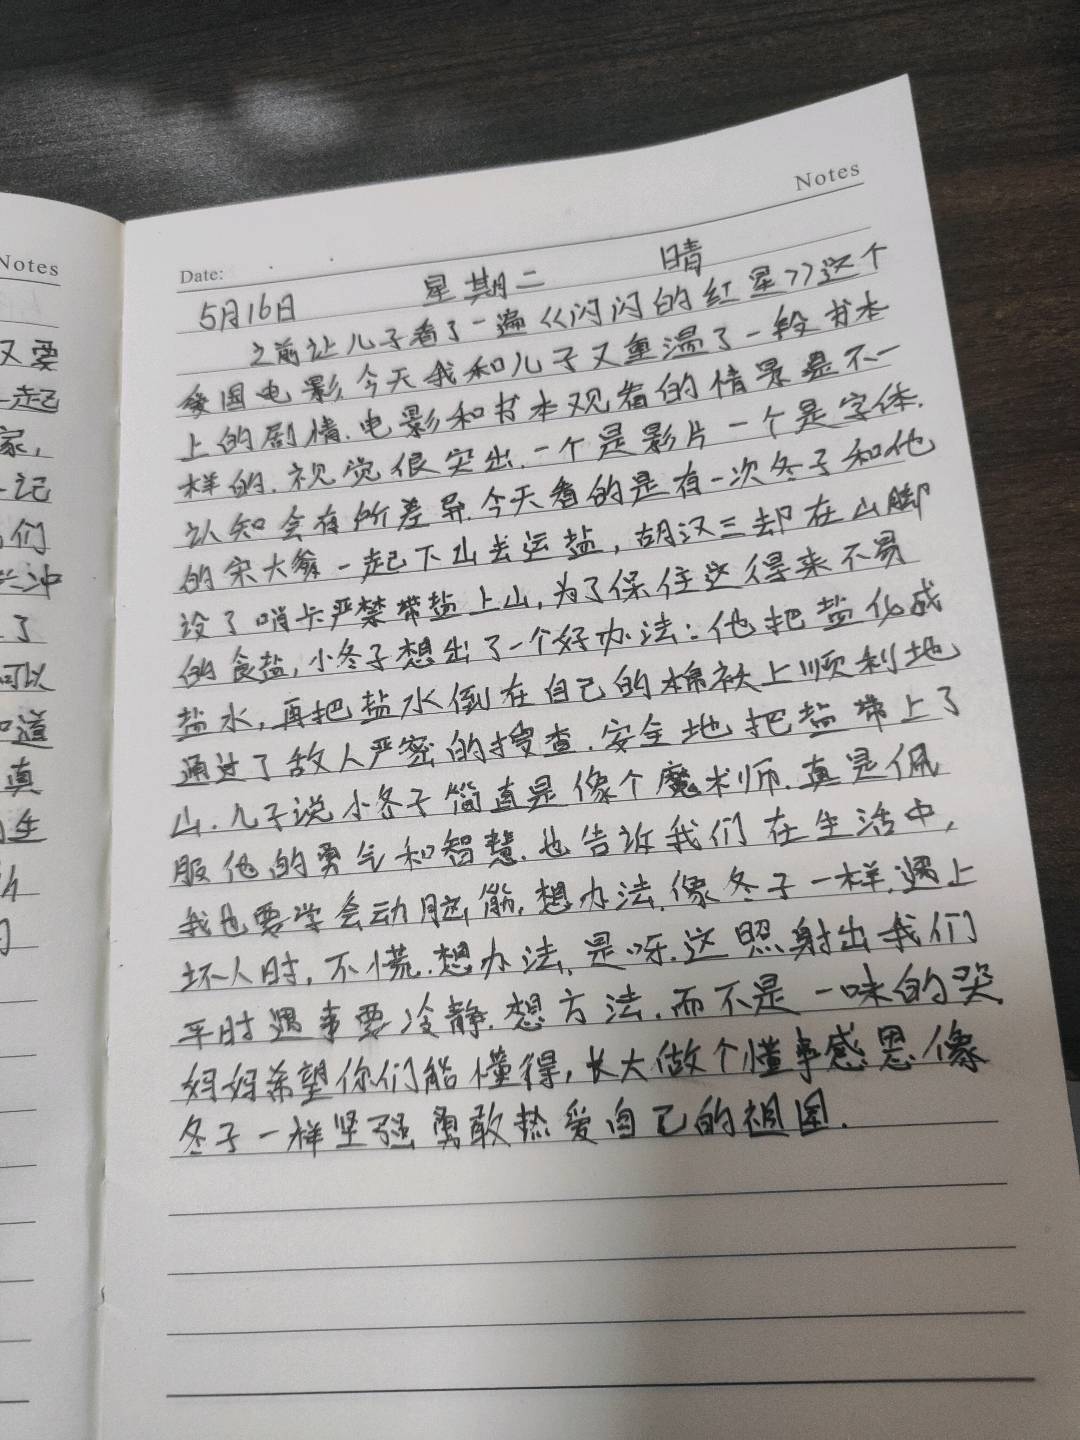 Notes
Date:
5月16日 星期二 晴
之前让儿子看了一遍《闪闪的红星》这个
爱国电影,今天我和儿子又重温了一段书本
上的剧情.电影和书本观看的情景是不一
样的.视觉很突出.一个是影片一个是字体.
认知会有所差异.今天看的是有一次冬子和他
的宋大爹一起下山去运盐,胡汉三却在山脚
设了哨卡严禁带盐上山,为了保住这得来不易
的食盐,小冬子想出了一个好办法:他把盐化成
盐水,再把盐水倒在自己的棉袄上顺利地
通过了敌人严密的搜查.安全地把盐带上了
山.儿子说小冬子简直是像个魔术师.真是佩
服他的勇气和智慧.也告诉我们在生活中,
我也要学会动脑筋,想办法.像冬子一样.遇上
坏人时,不慌.想办法.是呀.这照射出我们
平时遇事要冷静.想方法.而不是一味的哭.
妈妈希望你们能懂得,长大做个懂事感恩像
冬子一样坚强勇敢热爱自己的祖国.
Notes
又要
一起
家,
记
们
兴冲
了
可以
道
真
生